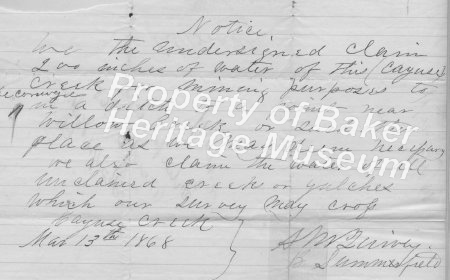 Notice
We the undersigned claim
200 inches of water of this (Cayuse)
Creek for mining purposes to
in a ditch near
Willow Creek or
place as we deem necessary
We also claim the water of all
unclaimed creek or gulches
which our survey may cross
Cayuse Creek
Mar 13th 1868
Summerfield
Property of Baker
Heritage Museum